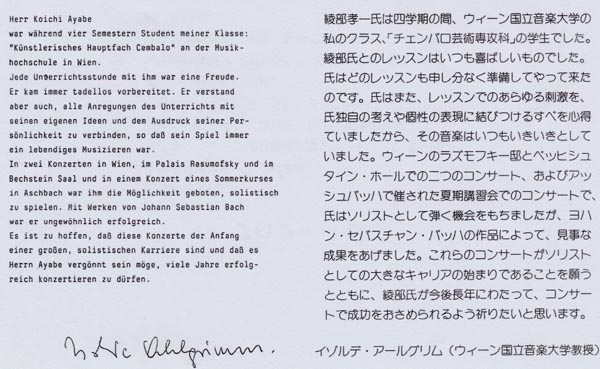 Herr Koichi Ayabe
war während vier Semestern Student meiner Klasse:
"Künstlerisches Hauptfach Cembalo" an der Musik-
hochschule in Wien.
Jede Unterrichtsstunde mit ihm war eine Freude.
Er kam immer tadellos vorbereitet. Er verstand
aber auch, alle Anregungen des Unterrichts mit
seinen eigenen Ideen und dem Ausdruck seiner Per-
sönlichkeit zu verbinden, so daß sein Spiel immer
ein lebendiges Musizieren war.
In zwei Konzerten in Wien, im Palais Rasumofsky und im
Bechstein Saal und in einem Konzert eines Sommerkurses
in Aschbach war ihm die Möglichkeit geboten, solistisch
zu spielen. Mit Werken von Johann Sebastian Bach
war er ungewöhnlich erfolgreich.
Es ist zu hoffen, daß diese Konzerte der Anfang
einer großen, solistischen Karriere sind und daß es
Herrn Ayabe vergönnt sein möge, viele Jahre erfolg-
reich konzertieren zu dürfen.
綾部孝一氏は四学期の間、ウィーン国立音楽大学の
私のクラス、「チェンバロ芸術専攻科」の学生でした。
綾部氏とのレッスンはいつも喜ばしいものでした。
氏はどのレッスンも申し分なく準備してやって来た
のです。氏はまた、レッスンでのあらゆる刺激を、
氏独自の考えや個性の表現に結びつけるすべを心得
ていましたから、その音楽はいつもいきいきとして
いました。ウィーンのラズモフキー邸とベッヒシュ
タイン・ホールでの二つのコンサート、およびアッ
シュバッハで催された夏期講習会でのコンサートで、
氏はソリストとして弾く機会をもちましたが、ヨハ
ン・セバスチャン・バッハの作品によって、見事な
成果をあげました。これらのコンサートがソリスト
としての大きなキャリアの始まりであることを願う
とともに、綾部氏が今後長年にわたって、コンサー
トで成功をおさめられるよう祈りたいと思います。
イゾルデ・アールグリム（ウィーン国立音楽大学教授）